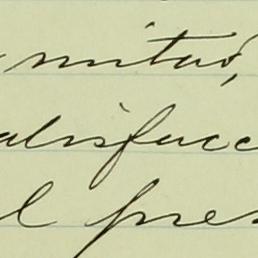 mitad,
atisfacc
l pres